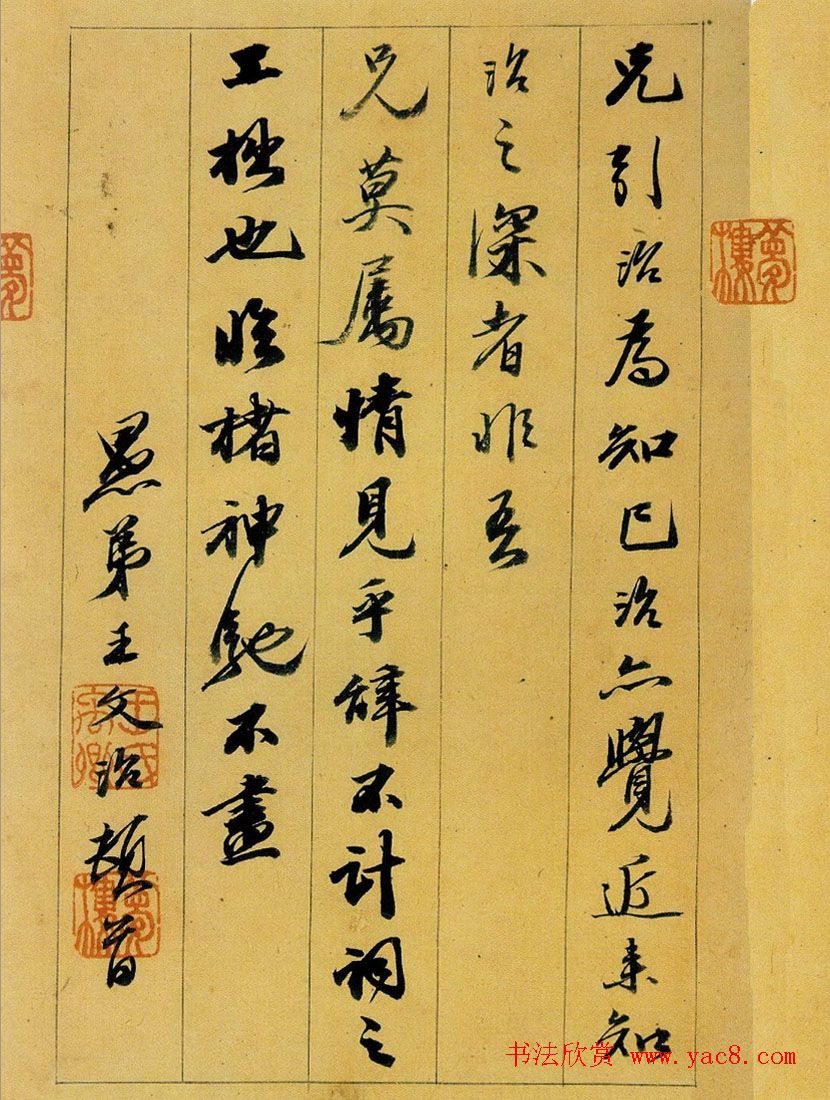 夢樓
兄引治為知己治亦覺近來知
治之深者非吾
兄莫屬情見乎辭不計詞之
工拙也臨楮神馳不盡
愚弟王文治頓首
王氏禹卿
夢樓
书法欣赏 www.yac8.com